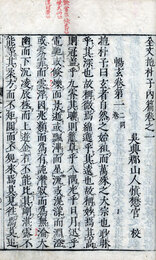 抱朴子內篇卷之一
吳興郡山人慎懋官校
暢玄卷第一
抱朴子曰玄者自然之始祖而萬殊之大宗也眇昧
乎其深也故稱微焉綿邈乎其遠也故稱妙焉其高
則冠蓋乎九霄其曠則籠罩乎八隅光乎日月迅乎
電馳或倏爍而景逝或飄滭而星流或滉漾於淵澄
或雰霏而雲浮因兆類而為有託潛寂而為無淪大
幽而下沉凌辰極而上游金石不能比其剛湛露不
能等其柔方而不矩圓而不規來焉莫見往焉莫追